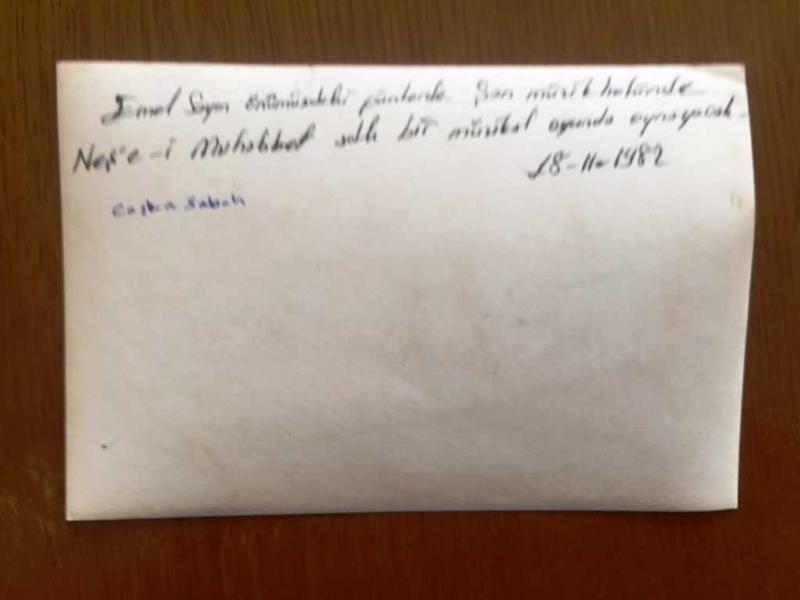 Emel Sayın önümüzdeki günlerde Şan müzikholünde
Neş'e-i Muhabbet adlı bir müzikal oyunda oynayacak.
18-11-1982
Sabah